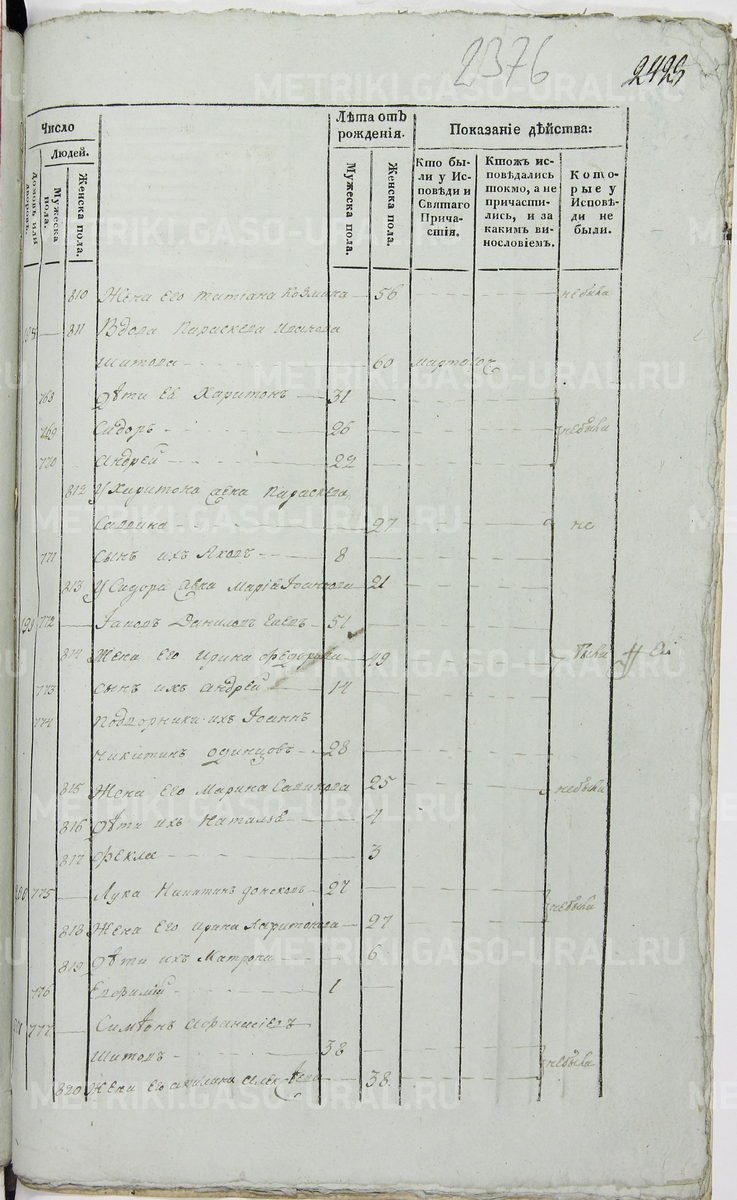 2376
2423
Число
Лѣта отъ рожденія.
Показаніе дѣйства:
Людей.
Домовъ или дворовъ.
Мужеска пола.
Женска пола.
Мужеска пола.
Женска пола.
Кто были у Исповѣди и Святаго Причастія.
Ктожъ исповѣдались токмо, а не причастились, и за какимъ винословіемъ.
Которые у Исповѣди не были.
810 Жена его татіана Козмина 56 небыла
198 811 Вдова Параскева Иванова
Шитова 60
768 Дѣти Ея Харитонъ 31
769 Сидоръ 26 небыли
770 андрей 22
812 У Харитона жена Параскева
Саввина 27 не
771 сынъ ихъ Яковъ 8
813 У Сидора жена Марія Іоаннова 21
199 772 Данилов 51
814 Жена его ирина Федорова 49 были
773 сынъ ихъ андрей 14
774 Подворники ихъ Іоаннъ
никитинъ одинцовъ 28
815 Жена его Марина Саввинова 25 небыли
816 Дѣти ихъ Наталья 4
817 Фекла 3
200 775 Лука Никитинъ донсковъ 27 небыли
818 Жена его ирина Харитонова 27
819 Дѣти ихъ Матрона 6
776 Евфимій 1
201 777 Симеонъ афанасіевъ
Шитовъ 38 небыли
820 Жена его акилина 38
METRIKI.GASO-URAL.RU